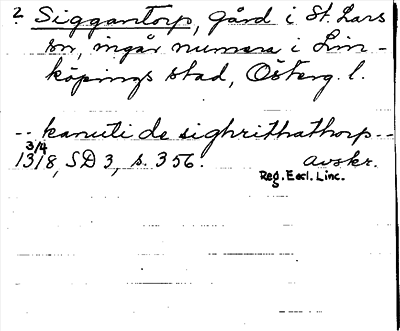 ? Siggantorp, gård i St. Lars
sn, ingår numera i Lin-
köpings stad, Österg. l.
-- kanuti de sighrittathorp --
3/4
1318, SD 3, s. 356. avskr.
Reg. Eccl. Linc.